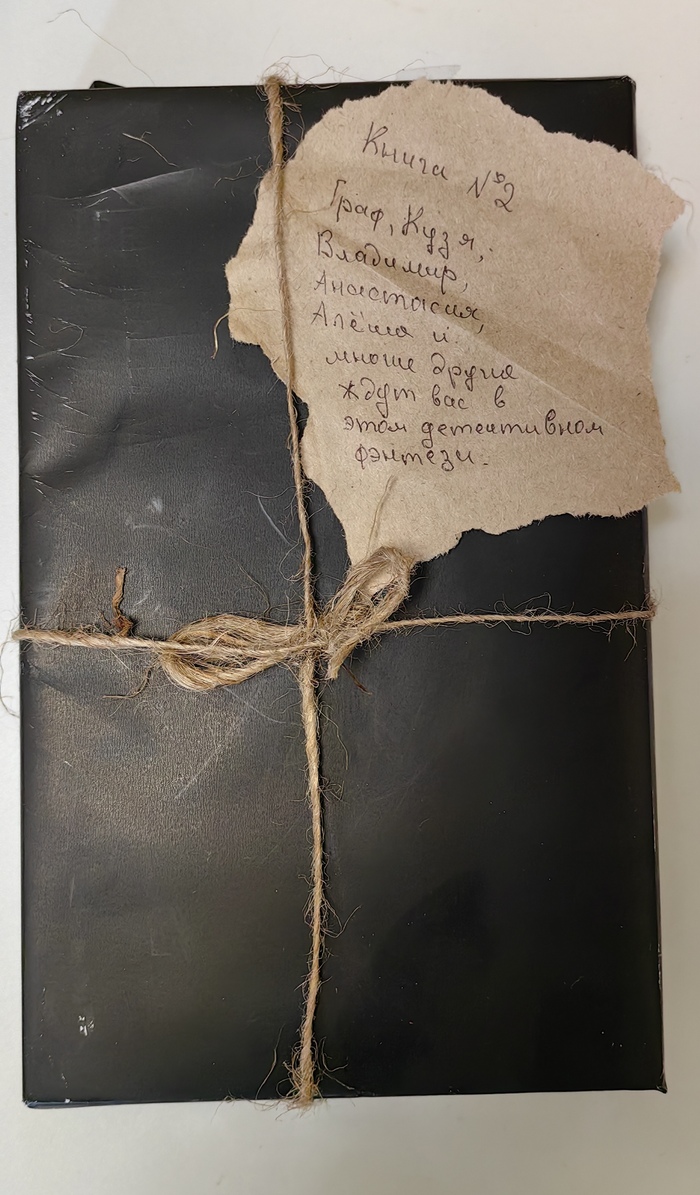 Книга №2
Граф, Кузя,
Владимир,
Анастасия,
Алёша и
многие другие
ждут вас в
этом детективном
фэнтези.